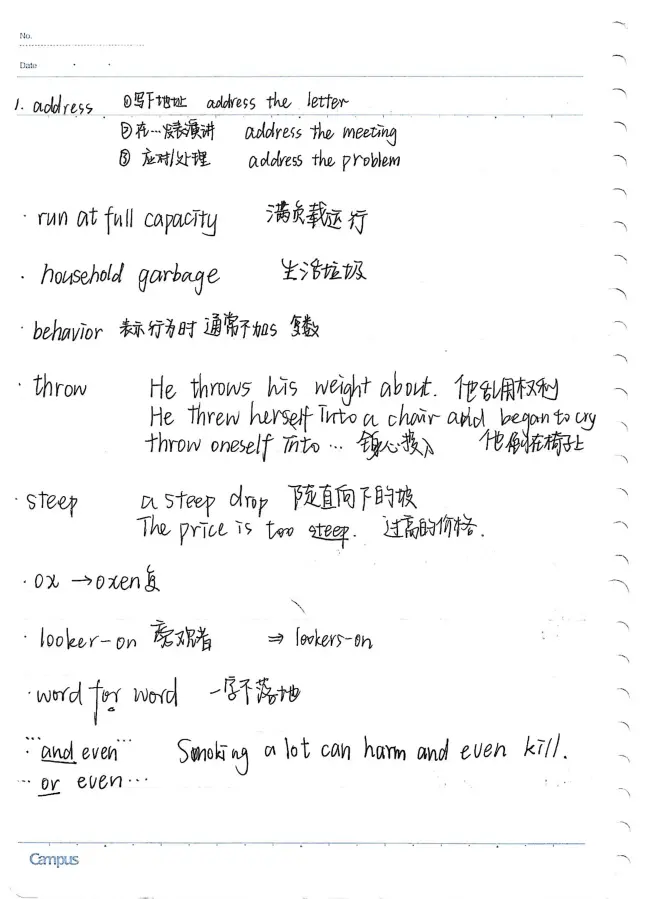 No.
Date
1. address ①写下地址 address the letter
②在…发表演讲 address the meeting
③ 应对/处理 address the problem
· run at full capacity 满负载运行
· household garbage 生活垃圾
· behavior 表示行为时 通常不加s 复数
· throw He throws his weight about. 他乱用权利
He threw herself into a chair and began to cry
throw oneself into … 倾心投入 他倒在椅子上
· steep a steep drop 陡直向下的坡
The price is too steep. 过高的价格.
· ox → oxen复
· looker-on 旁观者 ⇒ lookers-on
· word for word 一字不落地
… and even … Smoking a lot can harm and even kill.
… or even …
Campus